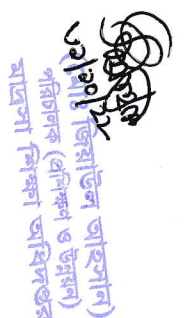 জিয়াউল আহসান)
পরিচালক (প্রশিক্ষণ ও উন্নয়ন)
মাদ্রাসা শিক্ষা অধিদপ্তর